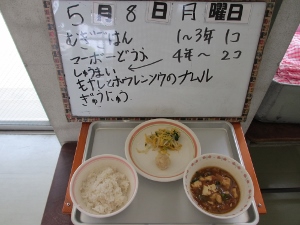 5月8日月曜日
むぎごはん 1～3年 1コ
マーボーどうふ 4年～ 2コ
しゅうまい
もやしとホウレンソウのナムル
ぎゅうにゅう